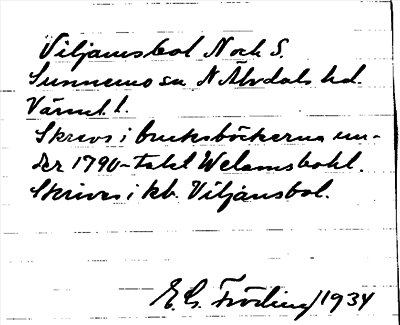 Viljamsbol N och S.
Sunnemo sn N Älvdals hd.
Värml. l.
Skrevs i bruksböckerna un-
der 1790-talet Welamsbohl.
Skrives i kb. Viljansbol.
E. G. Fröding/1934